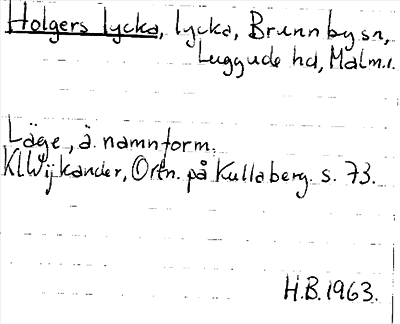 Holgers lycka, lycka, Brunnby sn,
Luggude hd, Malm.l.
Läge, ä. namnform.
Kl Wijkander, Ortn. på Kullaberg. s. 73.
H.B. 1963.